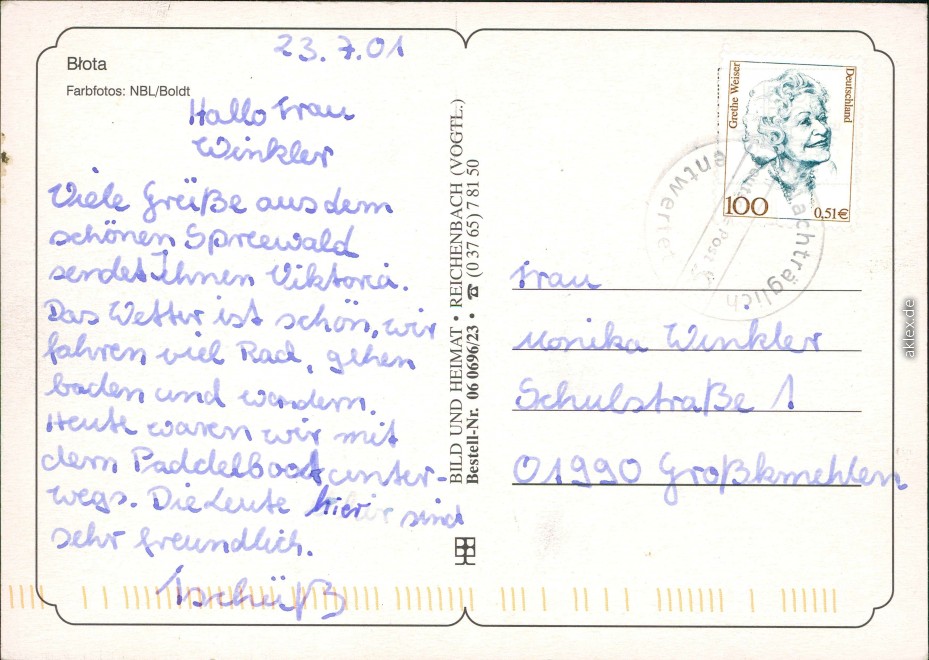 23.7.01
Błota
Farbfotos: NBL/Boldt
Hallo Frau
Winkler
Viele Grüße aus dem
schönen Spreewald
sendet Ihnen Viktoria.
Das Wetter ist schön, wir
fahren viel Rad, gehen
baden und wandern.
Heute waren wir mit
dem Paddelboot unter-
wegs. Die Leute hier sind
sehr freundlich.
Tschüß
BILD UND HEIMAT • REICHENBACH (VOGTL.)
Bestell-Nr. 06 0696/23 • ☎ (0 37 65) 7 81 50
Grethe Weiser
Deutschland
100
0,51€
nachträglich
entwertet
Deutsche Post
Frau
Monika Winkler
Schulstraße 1
01990 Großkmehlen
aklex.de